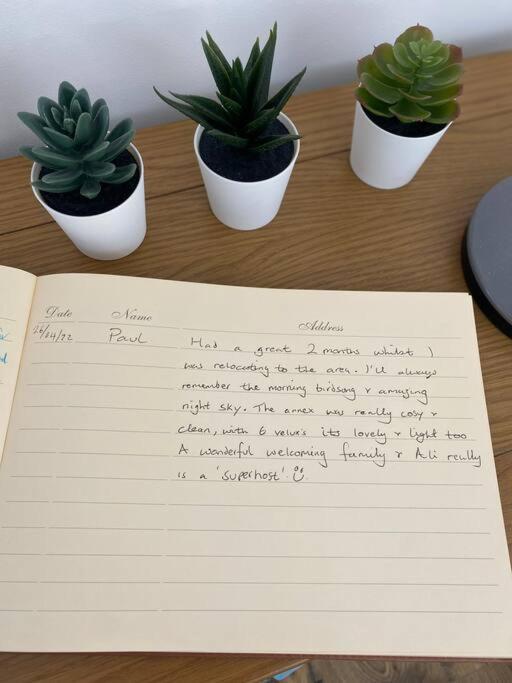 Date Name Address
26/04/22 Paul Had a great 2 months whilst I
was relocating to the area. I'll always
remember the morning birdsong & amazing
night sky. The annex was really cosy &
clean, with 6 velux's its lovely & light too
A wonderful welcoming family & Ali really
is a 'superhost'.